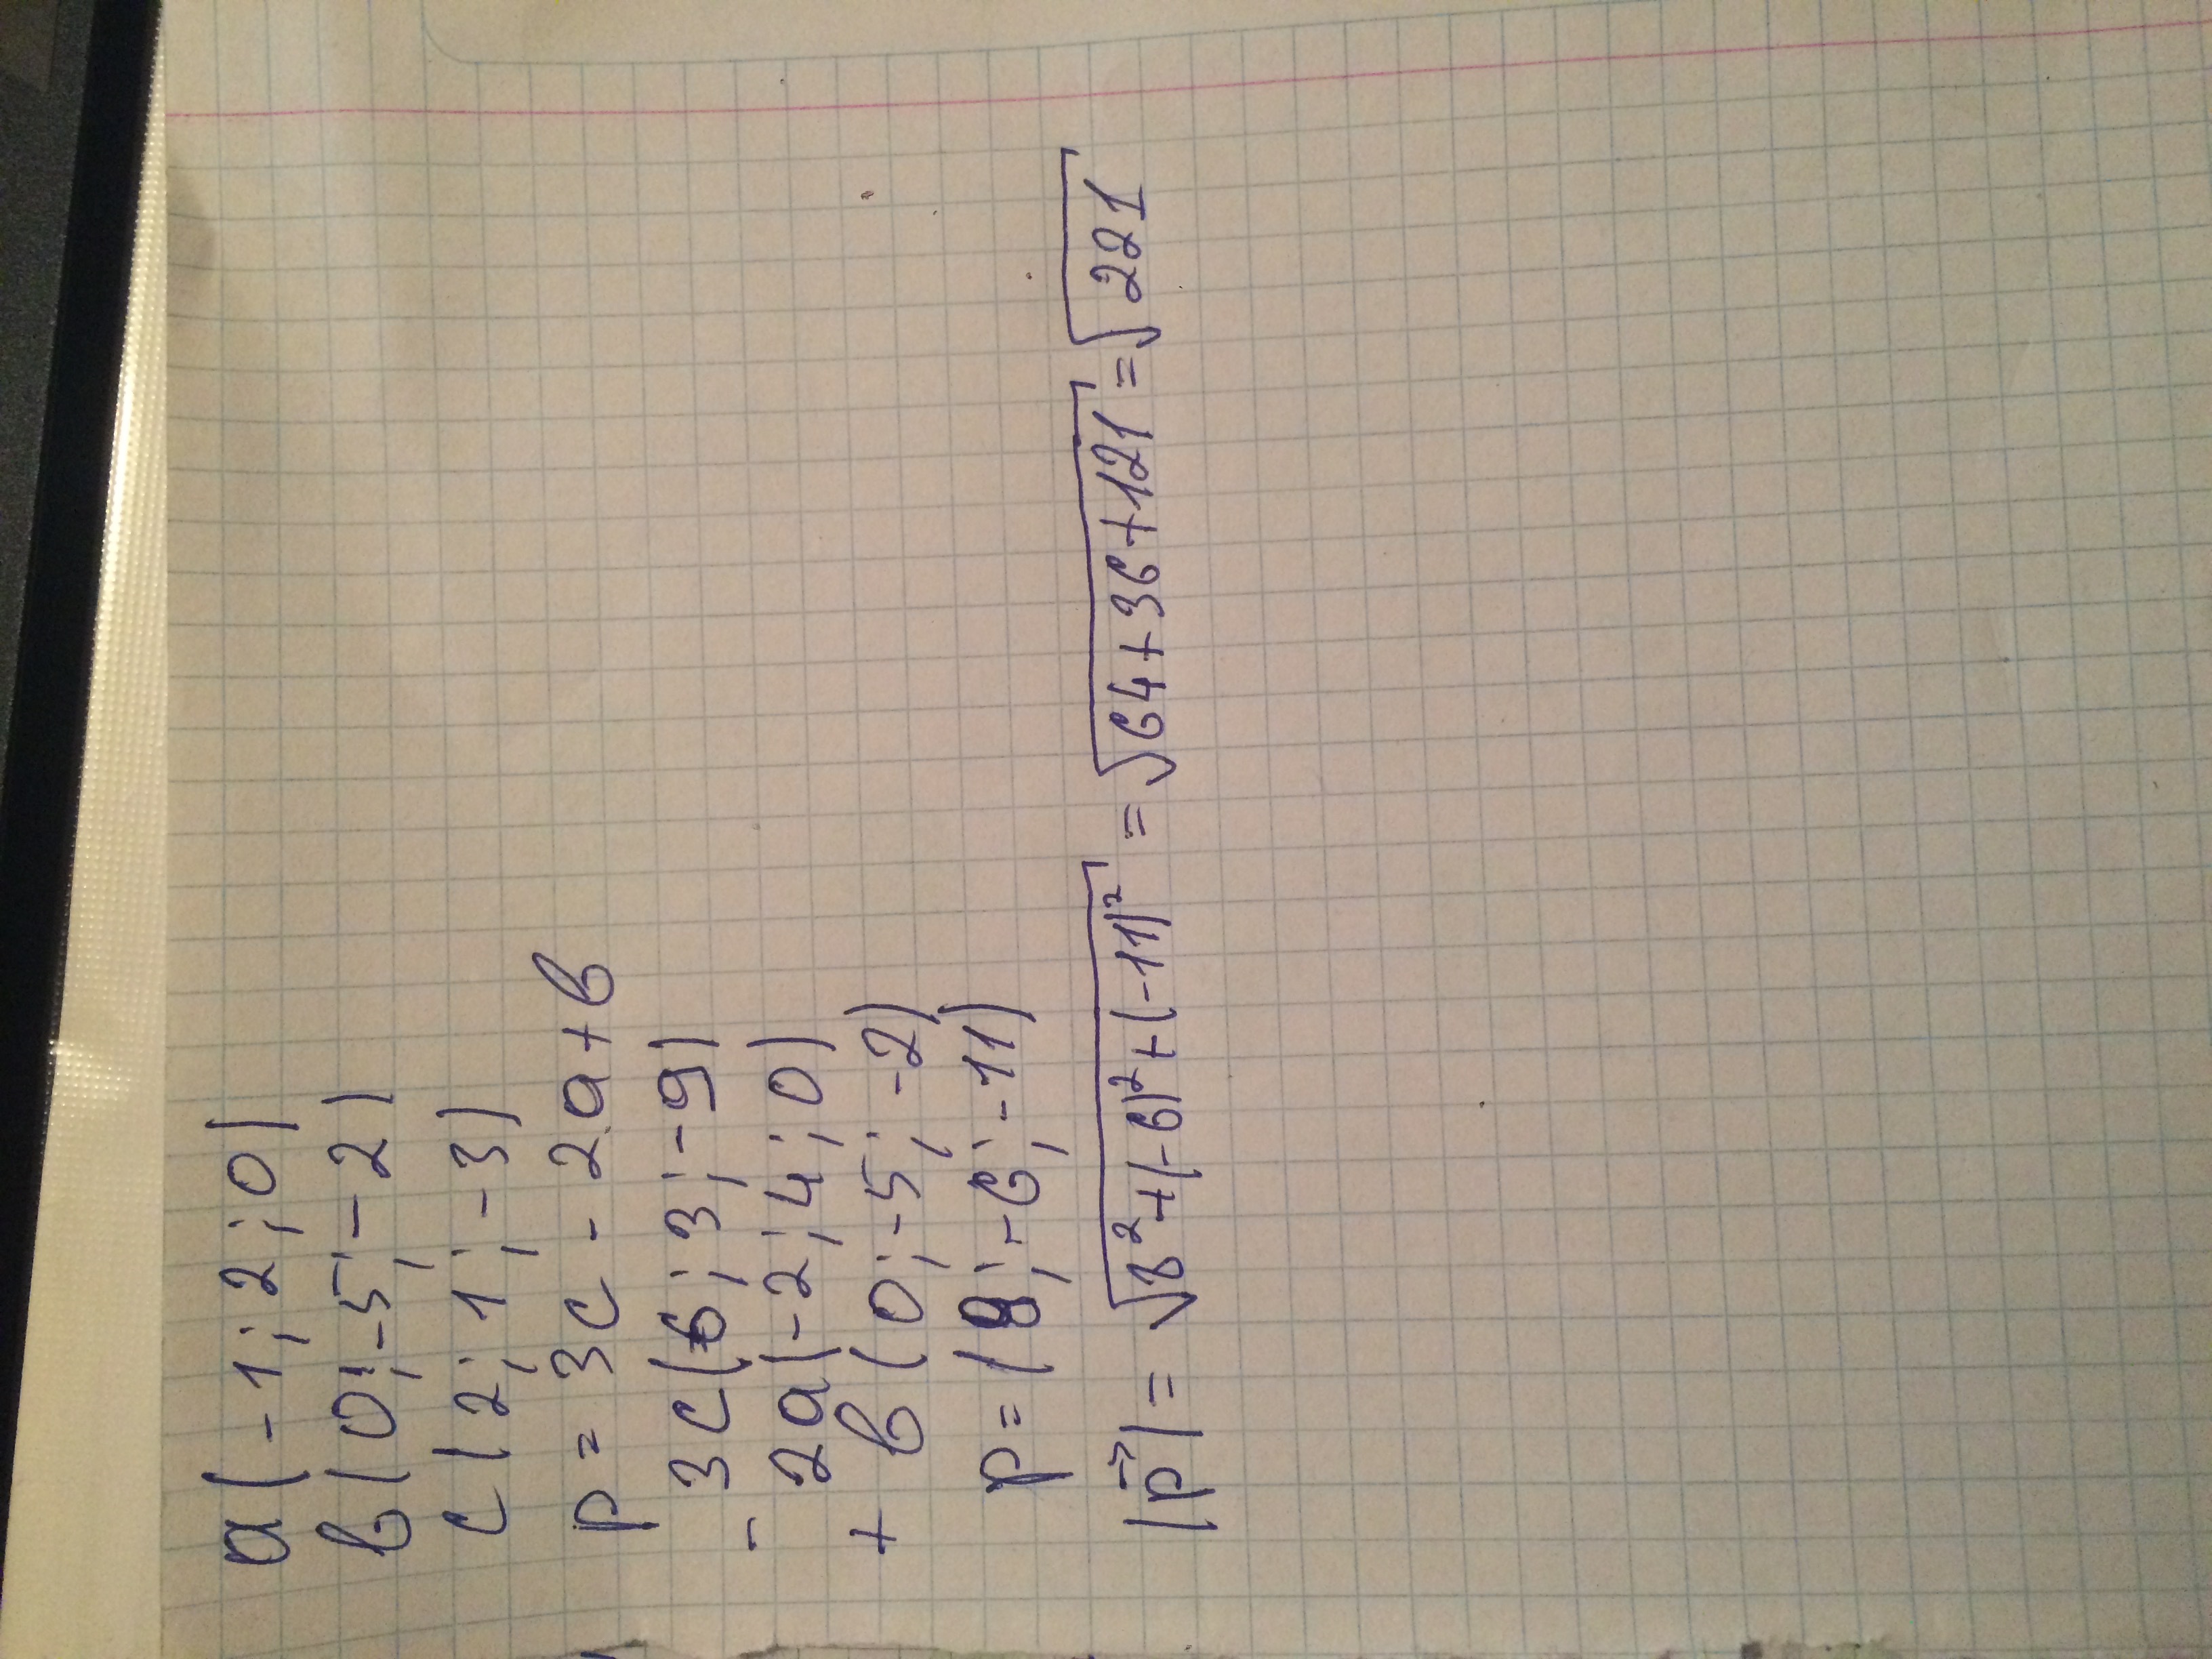 a(-1;2;0)
b(0;-5;-2)
c(2;1;-3)
p=3c-2a+b
3c(6;3;-9)
- 2a(-2;4;0)
+ b(0;-5;-2)
p=(8;-6;-11)
|p⃗|=√(8²+(-6)²+(-11)²)=√(64+36+121)=√221